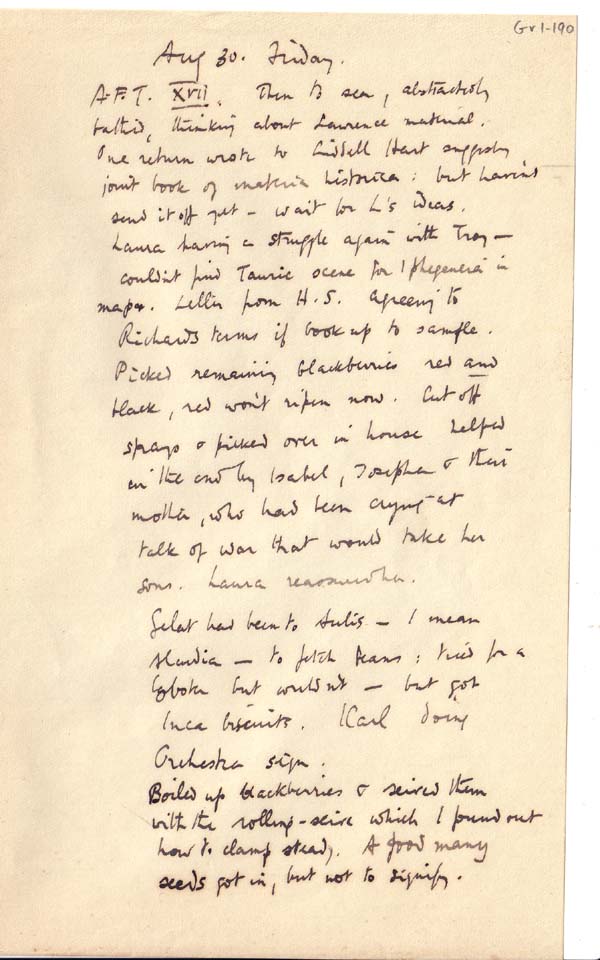 Gv1-190
Aug 30. Friday.
A.F.T. XVII. Then to sea, abstractedly
bathed, thinking about Lawrence material.
One return wrote to Liddell Hart suggesting
joint book of materia historica: but haven't
send it off yet - wait for L's ideas.
Laura having a struggle again with Troy -
couldn't find Tauric scene for Iphegeneia in
maps. Letter from H.S. agreeing to
Richards terms if book up to sample.
Picked remaining blackberries red and
black, red won't ripen now. Cut off
sprays & picked over in house helped
in the end by Isabel, Josepha & their
mother, who had been crying at
talk of war that would take her
sons. Laura reassured her.
Gelat had been to Aulis - I mean
Alcudia - to fetch beans: tried for a
but couldn't - but got
Inca biscuits. Karl doing
Orchestra sign.
Boiled up blackberries & seived them
with the rolling-seive which I found out
how to clamp steady. A good many
seeds got in, but not to signify.